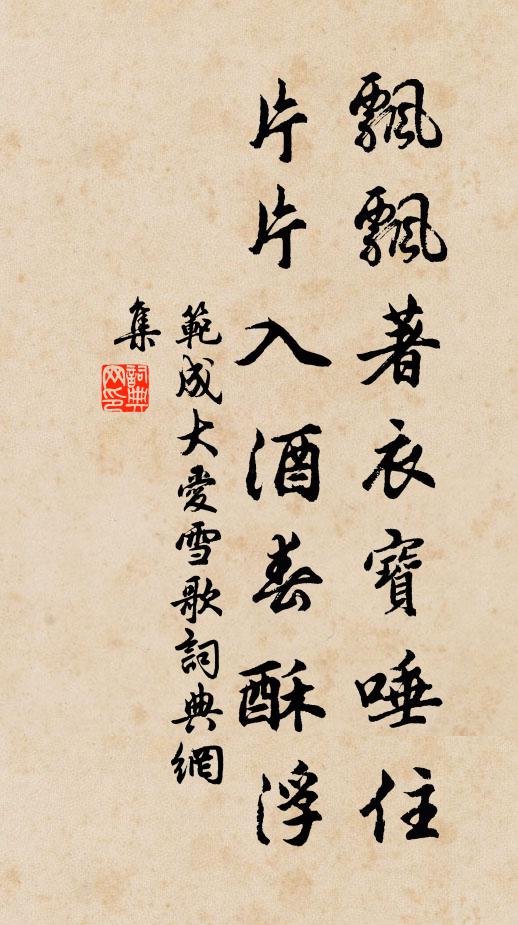 飄飄著衣寶唾住
片片入酒春酥浮
範成大愛雪歌詞典網
集
詞典网印